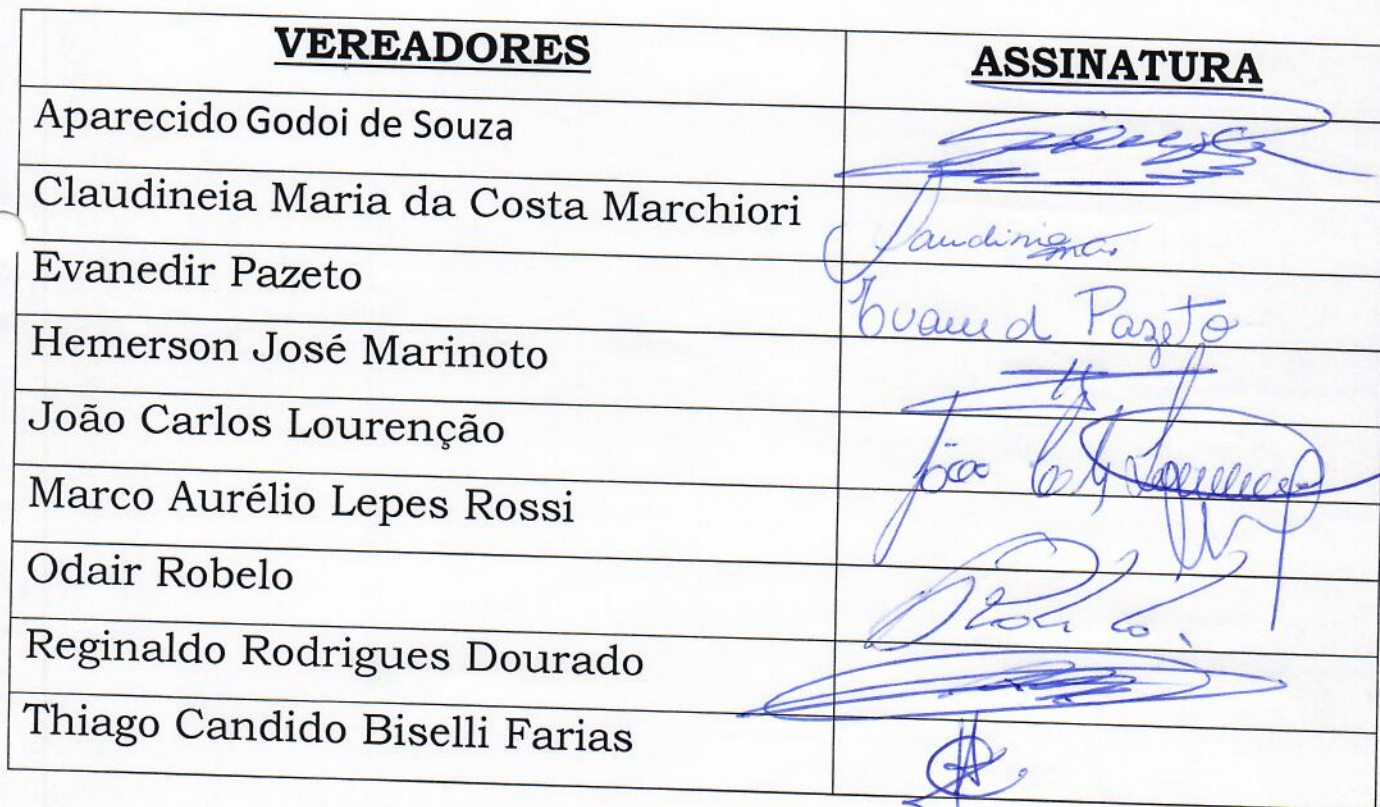 VEREADORES ASSINATURA
Aparecido Godoi de Souza
Claudineia Maria da Costa Marchiori
Evanedir Pazeto Pazeto
Hemerson José Marinoto
João Carlos Lourenção João
Marco Aurélio Lepes Rossi
Odair Robelo
Reginaldo Rodrigues Dourado
Thiago Candido Biselli Farias